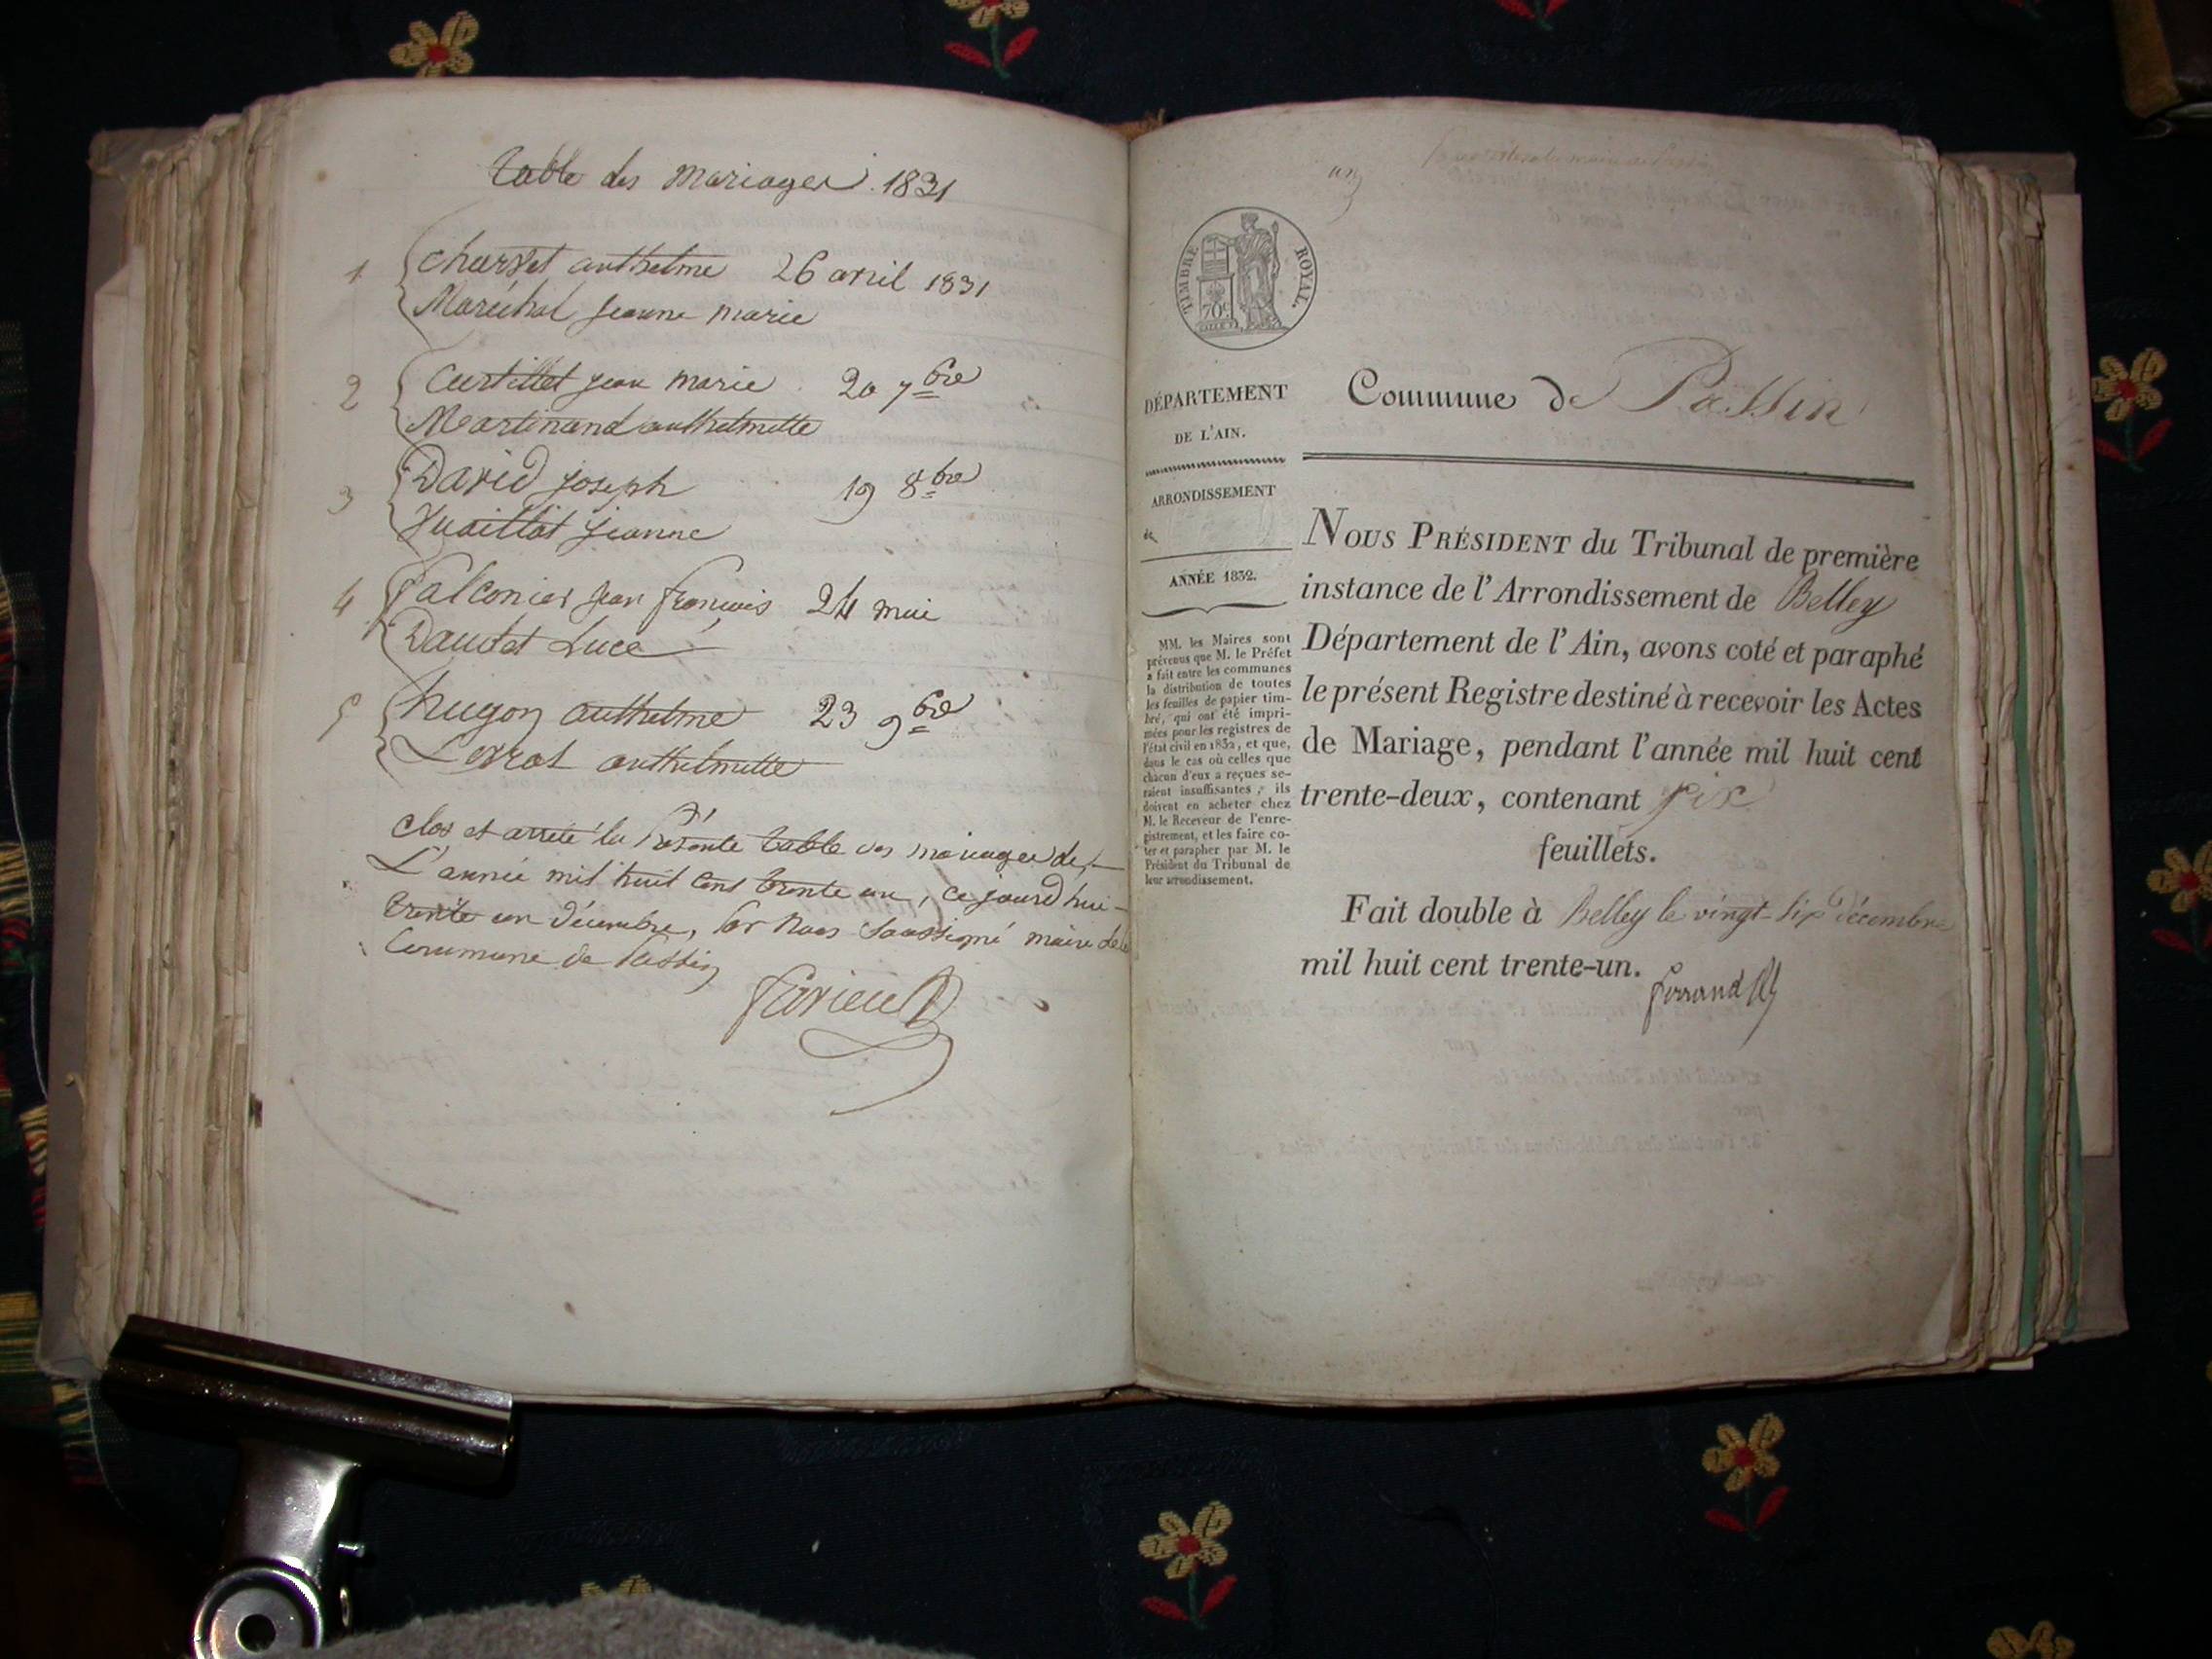 table des mariages 1831
1 Charvet anthelme 26 avril 1831
Maréchal jeanne marie
2 Curtillet jean marie 20 7bre
Martinand anthelmette
3 David joseph 19 8bre
Juaillat jeanne
4 falconier jean françois 24 mai
Daudet Luce
5 hugon anthelme 23 9bre
anthelmette
Clos et arrêté la Présente table des mariages de
L'année mil huit cent trente un, ce jourd'hui
trente un décembre, par Nous Soussigné maire de la
Commune de Passin
un
TIMBRE ROYAL.
70c
DÉPARTEMENT
DE L'AIN.
ARRONDISSEMENT
de
ANNÉE 1832.
MM. les Maires sont
prévenus que M. le Préfet
a fait entre les communes
la distribution de toutes
les feuilles de papier tim-
bré, qui ont été impri-
mées pour les registres de
l'état civil en 1832, et que,
dans le cas où celles que
chacun d'eux a reçues se-
raient insuffisantes, ils
doivent en acheter chez
M. le Receveur de l'enre-
gistrement, et les faire co-
ter et parapher par M. le
Président du Tribunal de
leur arrondissement.
Commune de Passin
NOUS PRÉSIDENT du Tribunal de première
instance de l'Arrondissement de Belley
Département de l'Ain, avons coté et paraphé
le présent Registre destiné à recevoir les Actes
de Mariage, pendant l'année mil huit cent
trente-deux, contenant six
feuillets.
Fait double à Belley le vingt-six décembre
mil huit cent trente-un.
ferrand